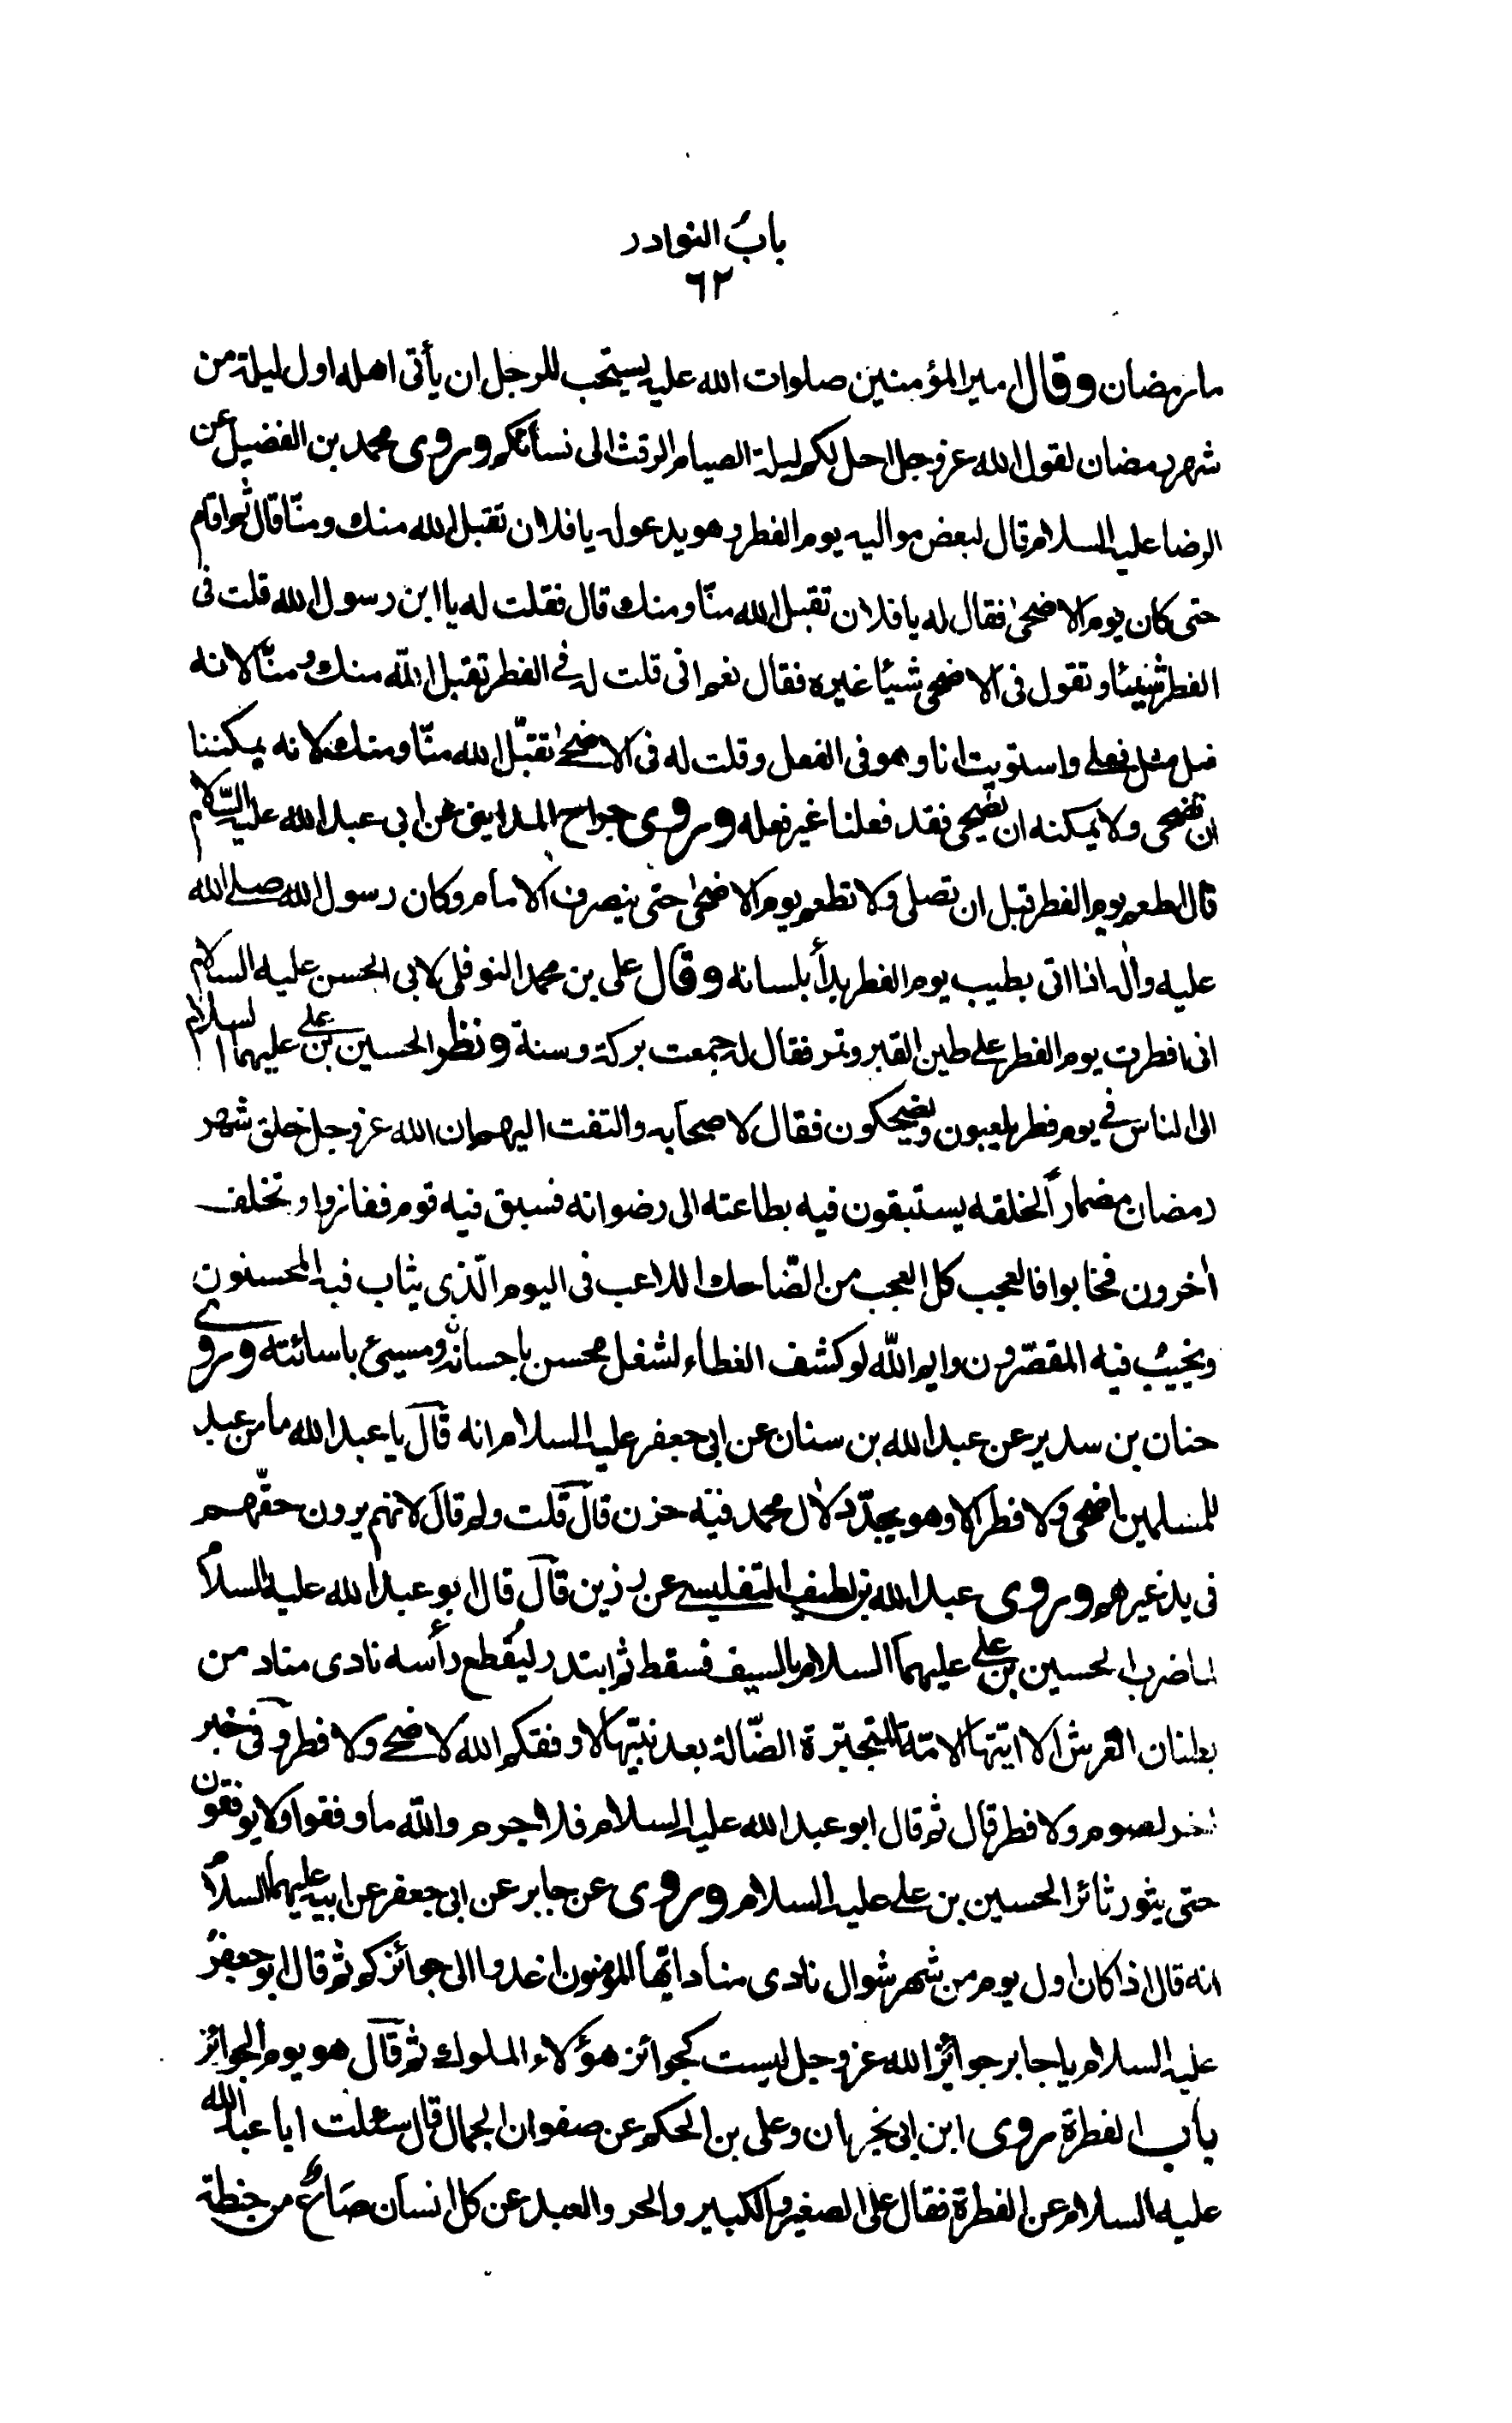 باب النوادر
٦٢
ما رمضان وقال امير المؤمنين صلوات الله عليه يستحب للرجل ان يأتى اهله اول ليلة من
شهر رمضان لقول الله عز وجل احل لكم ليلة الصيام الرفث الى نسائكم وروى محمد بن الفضيل عن
الرضا عليه السلام قال لبعض مواليه يوم الفطر وهو يدعو له يا فلان تقبل الله منك ومنّا قال ثم اقام
حتى كان يوم الاضحىٰ فقال له يا فلان تقبل الله منّا ومنك قال فقلت له يا ابن رسول الله قلت فى
الفطر شيئا وتقول فى الاضحى شيئا غيره فقال نعم انى قلت له فى الفطر تقبل الله منك ومنّا لانه
فعل مثل فعلى واستويت انا وهو فى الفعل وقلت له فى الاضحىٰ تقبّل الله منّا ومنك لانه يمكننا
ان نضحى ولا يمكنه ان يضحى فقد فعلنا غير فعله وروى جراح المداينى عن ابى عبد الله عليه السّلام
قال اطعم يوم الفطر قبل ان تصلى ولا تطعم يوم الاضحىٰ حتى ينصرف الامام وكان رسول الله صلى الله
عليه واٰله اذا اتى بطيب يوم الفطر بدأ بلسانه وقال على بن محمد النوفلى لابى الحسن عليه السلام
انى افطرت يوم الفطر على طين القبر وتمر فقال له جمعت بركة وسنة ونظر الحسين بن على عليهما السلام
الى الناس فى يوم فطر يلعبون ويضحكون فقال لاصحابه والتفت اليهم ان الله عز وجل خلق شهر
رمضان مضماراً لخلقه يستبقون فيه بطاعته الى رضوانه فسبق فيه قوم ففازوا وتخلف
اٰخرون فخابوا فالعجب كل العجب من الضّاحك اللاعب فى اليوم الّذى يثاب فيه المحسنون
ويخيب فيه المقصّرون وايم اللّه لو كشف الغطاء لشغل محسن باحسانه ومسيئ باسائته وروى
حنان بن سدير عن عبد الله بن سنان عن ابى جعفر عليه السلام انه قال يا عبد الله ما من عيد
للمسلمين اضحى ولا فطر الا وهو يجدّد لاٰل محمد فيه حزن قال قلت ولم قال لانهم يرون حقّهم
فى يد غيرهم وروى عبد الله بن لطيف التفليسى عن رزين قال قال ابو عبد الله عليه السلام
لما ضرب الحسين بن على عليهما السلام بالسيف فسقط ثم ابتدر ليُقطع رأسه نادى مناد من
بطنان العرش الا ايتها الامة المتحيّرة الضّالة بعد نبيّها لا وفقكم الله لاضحى ولا فطر وفى خبر
اٰخر لصوم ولا فطر قال ثم قال ابو عبد الله عليه السلام فلا جرم واللّه ما وفقوا ولا يوفقون
حتى يثور ثائر الحسين بن على عليه السلام وروى عن جابر عن ابى جعفر عن ابيه عليهما السلام
انه قال اذا كان اول يوم من شهر شوال نادى مناد ايّها المؤمنون اغدوا الى جوائزكم ثم قال ابو جعفر
عليه السلام يا جابر جوائز الله عز وجل ليست كجوائز هؤلاء الملوك ثم قال هو يوم الجوائز
باب الفطرة روى ابن ابى نجران وعلى بن الحكم عن صفوان الجمال قال سئلت ابا عبد الله
عليه السلام عن الفطرة فقال على الصغير والكبير والحر والعبد عن كل انسان صاع من حنطة